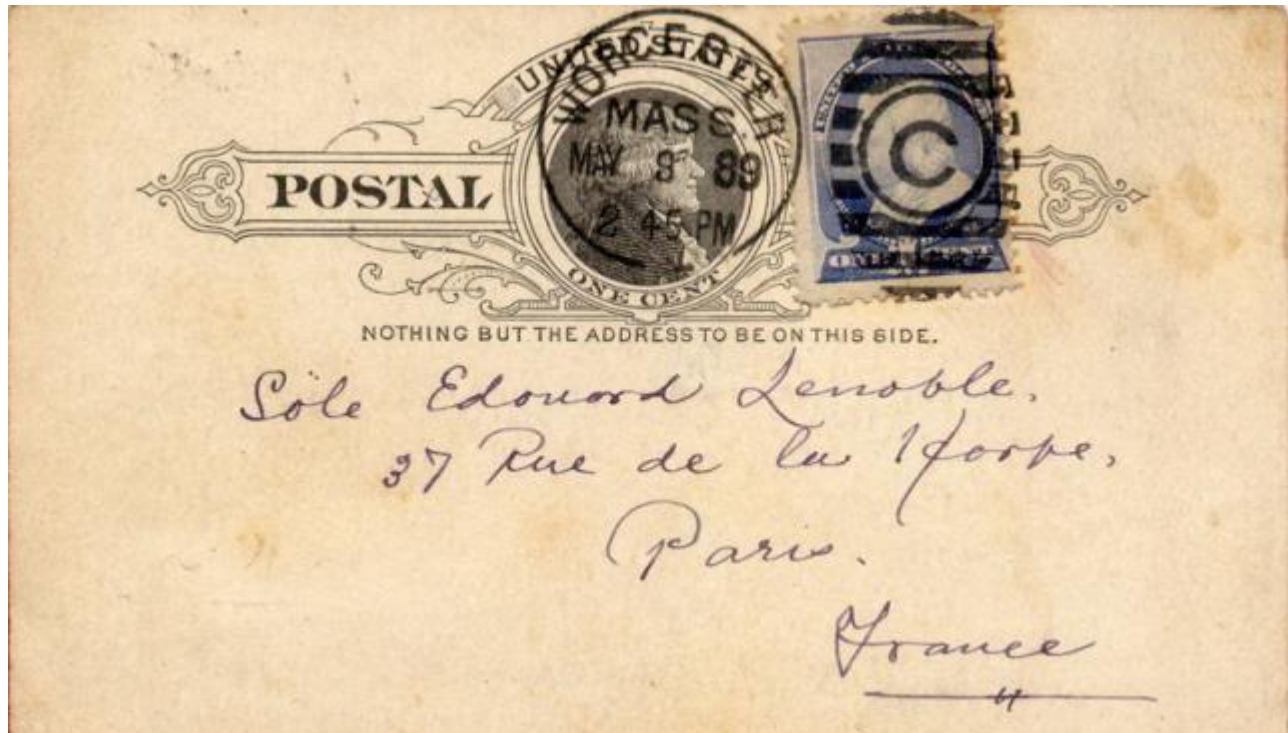 UNITED STATES
POSTAL
ONE CENT
WORCESTER
MASS.
MAY 8 89
2 45 PM
C
ONE CENT
NOTHING BUT THE ADDRESS TO BE ON THIS SIDE.
Edouard Lenoble.
37 Rue de la Harpe,
Paris.
France